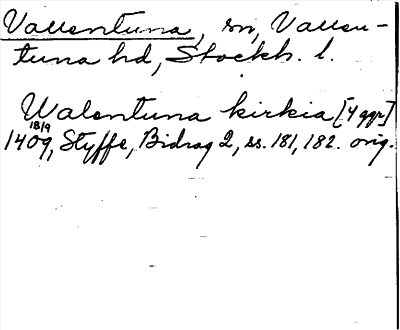 Vallentuna, sn, Vallen-
tuna hd, Stockh. l.
Walentuna kirkia [4 ggr]
18/9
1409, Styffe, Bidrag 2, ss. 181, 182. orig.